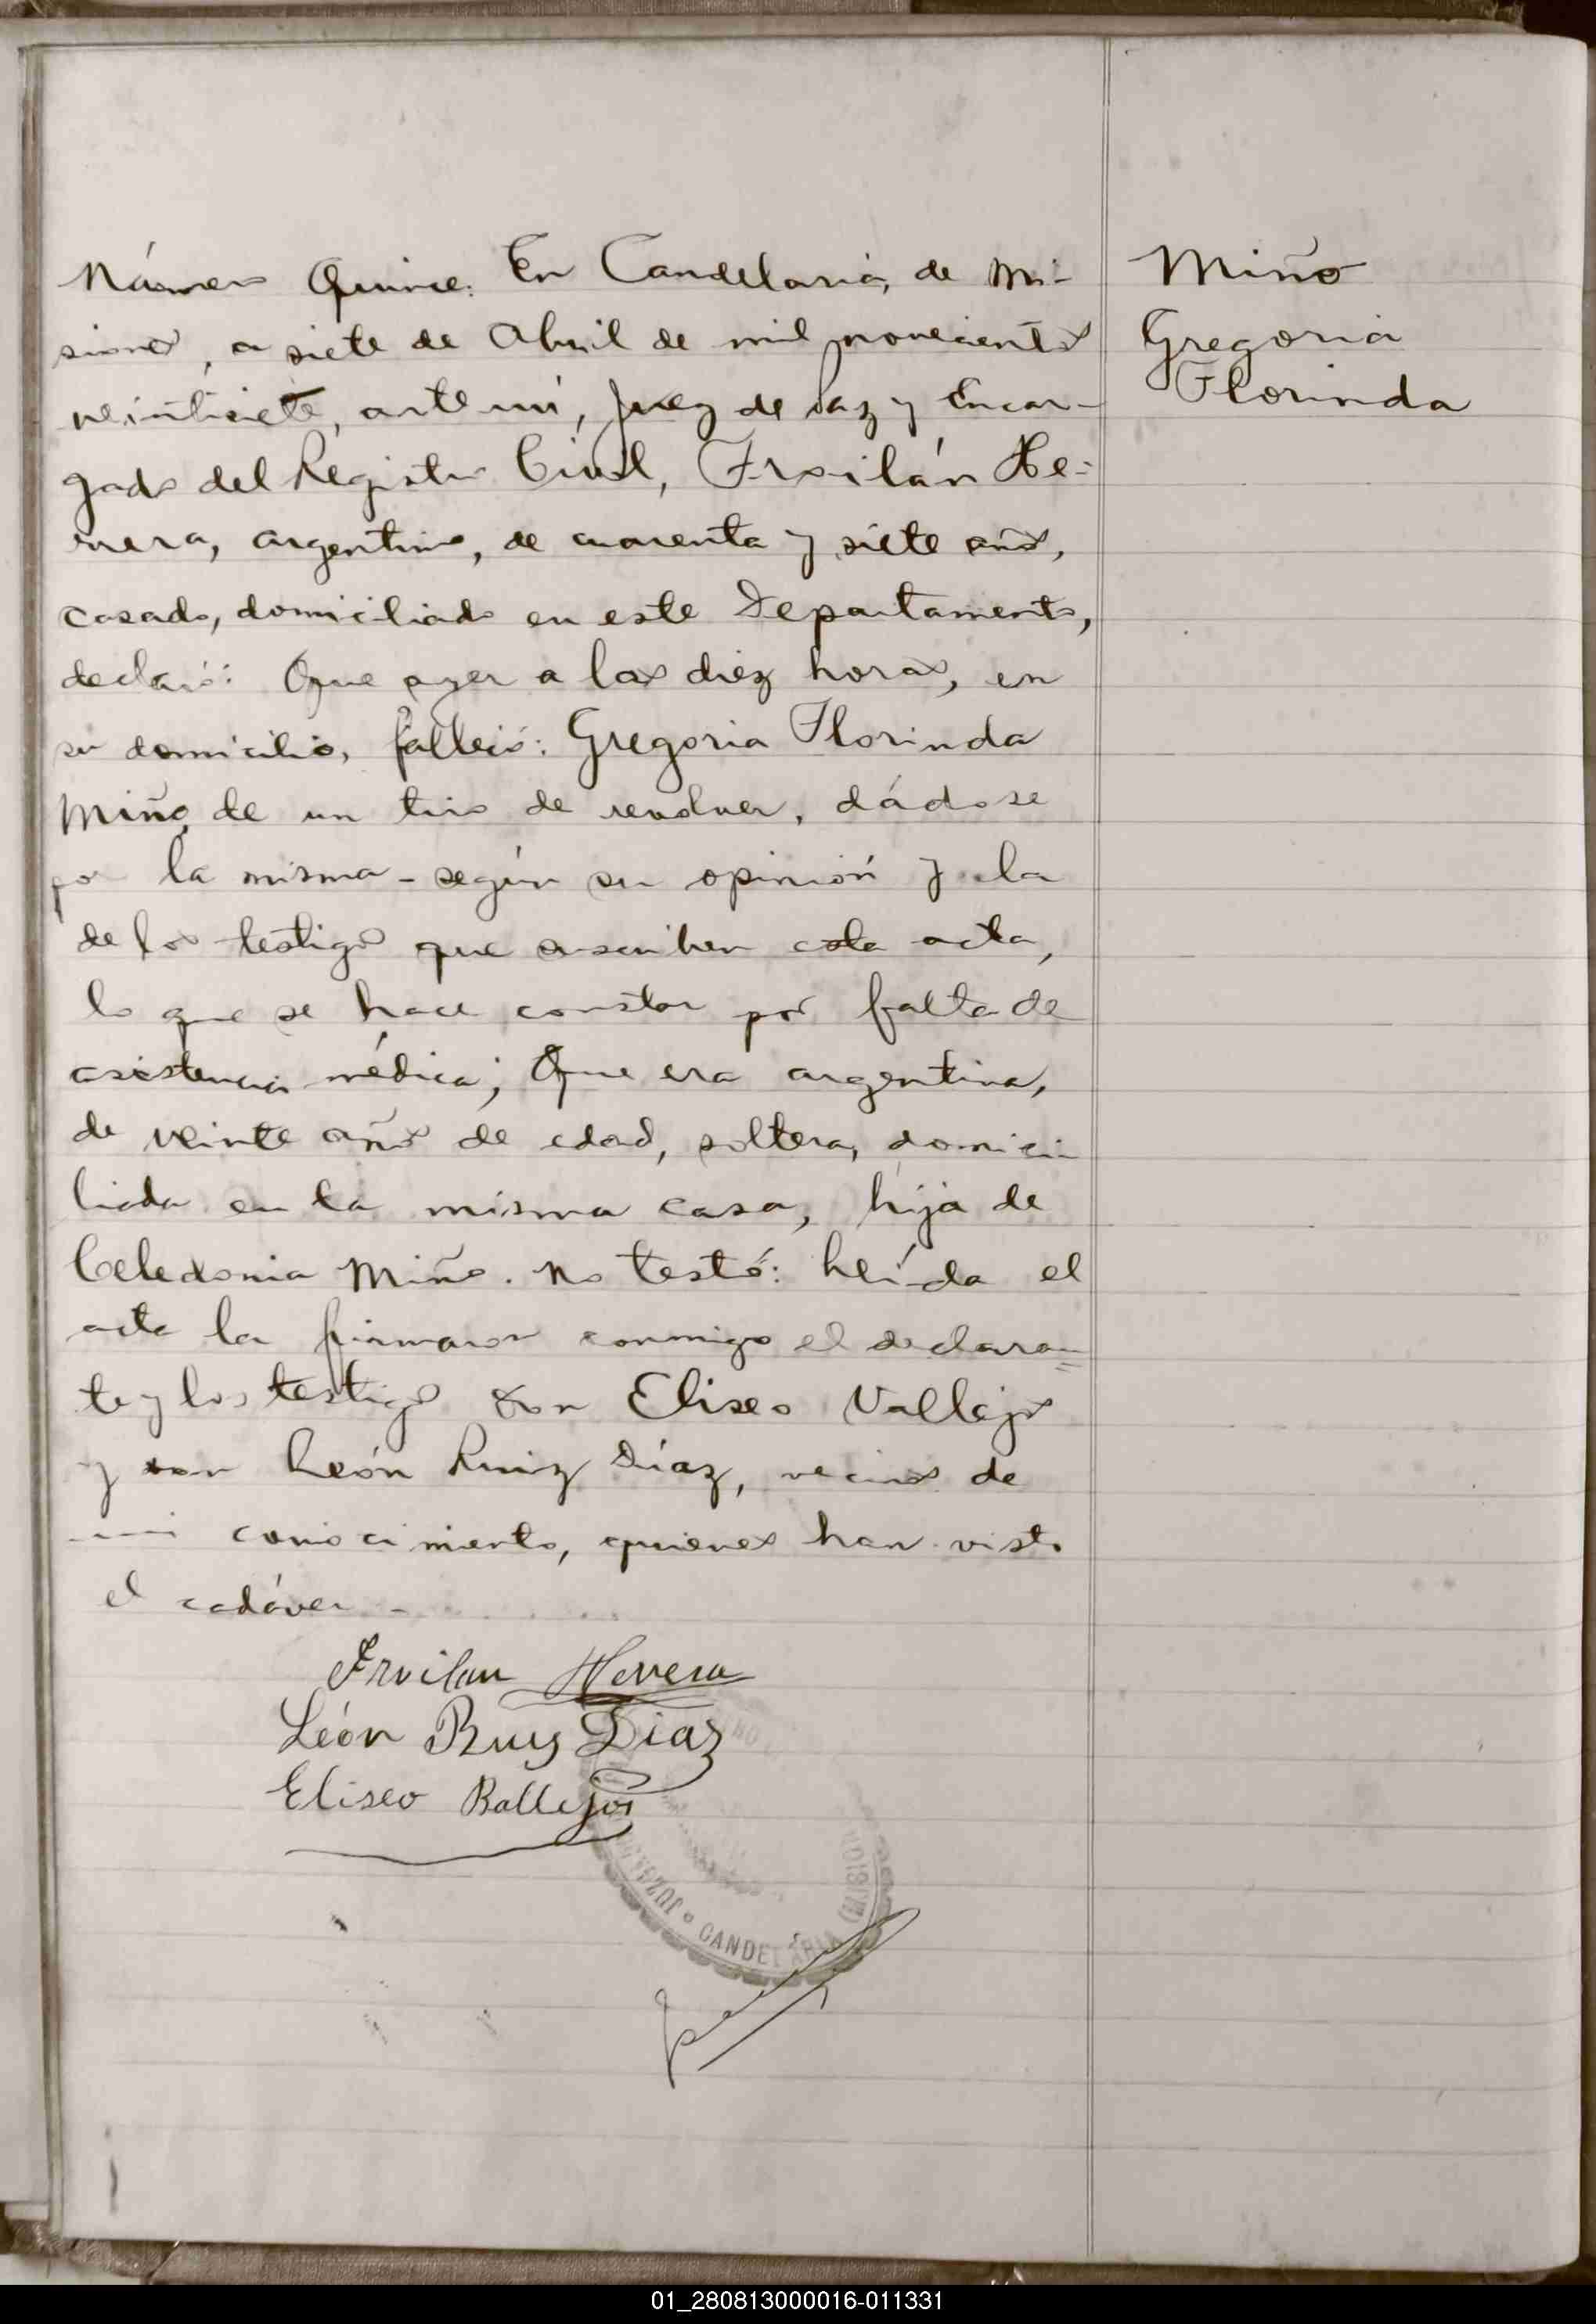 Número Quince: En Candelaria, de Mi-
siones, a siete de Abril de mil novecientos
veintisiete, ante mí, Juez de Paz y Encar-
gado del Registro Civil, Froilán He-
rrera, argentino, de cuarenta y siete años,
casado, domiciliado en este Departamento,
declaró: Que ayer a las diez horas, en
su domicilio, falleció: Gregoria Florinda
Miño, de un tiro de revolver, dádose
por la misma - según su opinión y la
de los testigos que suscriben esta acta,
lo que se hace constar por falta de
asistencia médica; Que era argentina,
de veinte años de edad, soltera, domici-
liada en la misma casa, hija de
Celedonia Miño. No testó: Leída el
acta la firmaron conmigo el declaran-
te y los testigos don Eliseo Vallejos
y don León Ruiz Díaz, vecinos de
mi conocimiento, quienes han visto
el cadáver -
Miño
Gregoria
Florinda
Froilan Herrera
León Ruiz Diaz
Eliseo Ballejos
JUZGADO
CANDELARIA
01_280813000016-011331